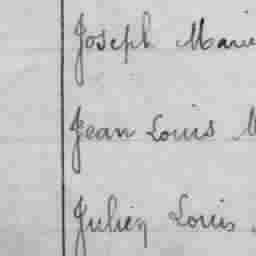 Joseph Marie
Jean Louis M
Julien Louis